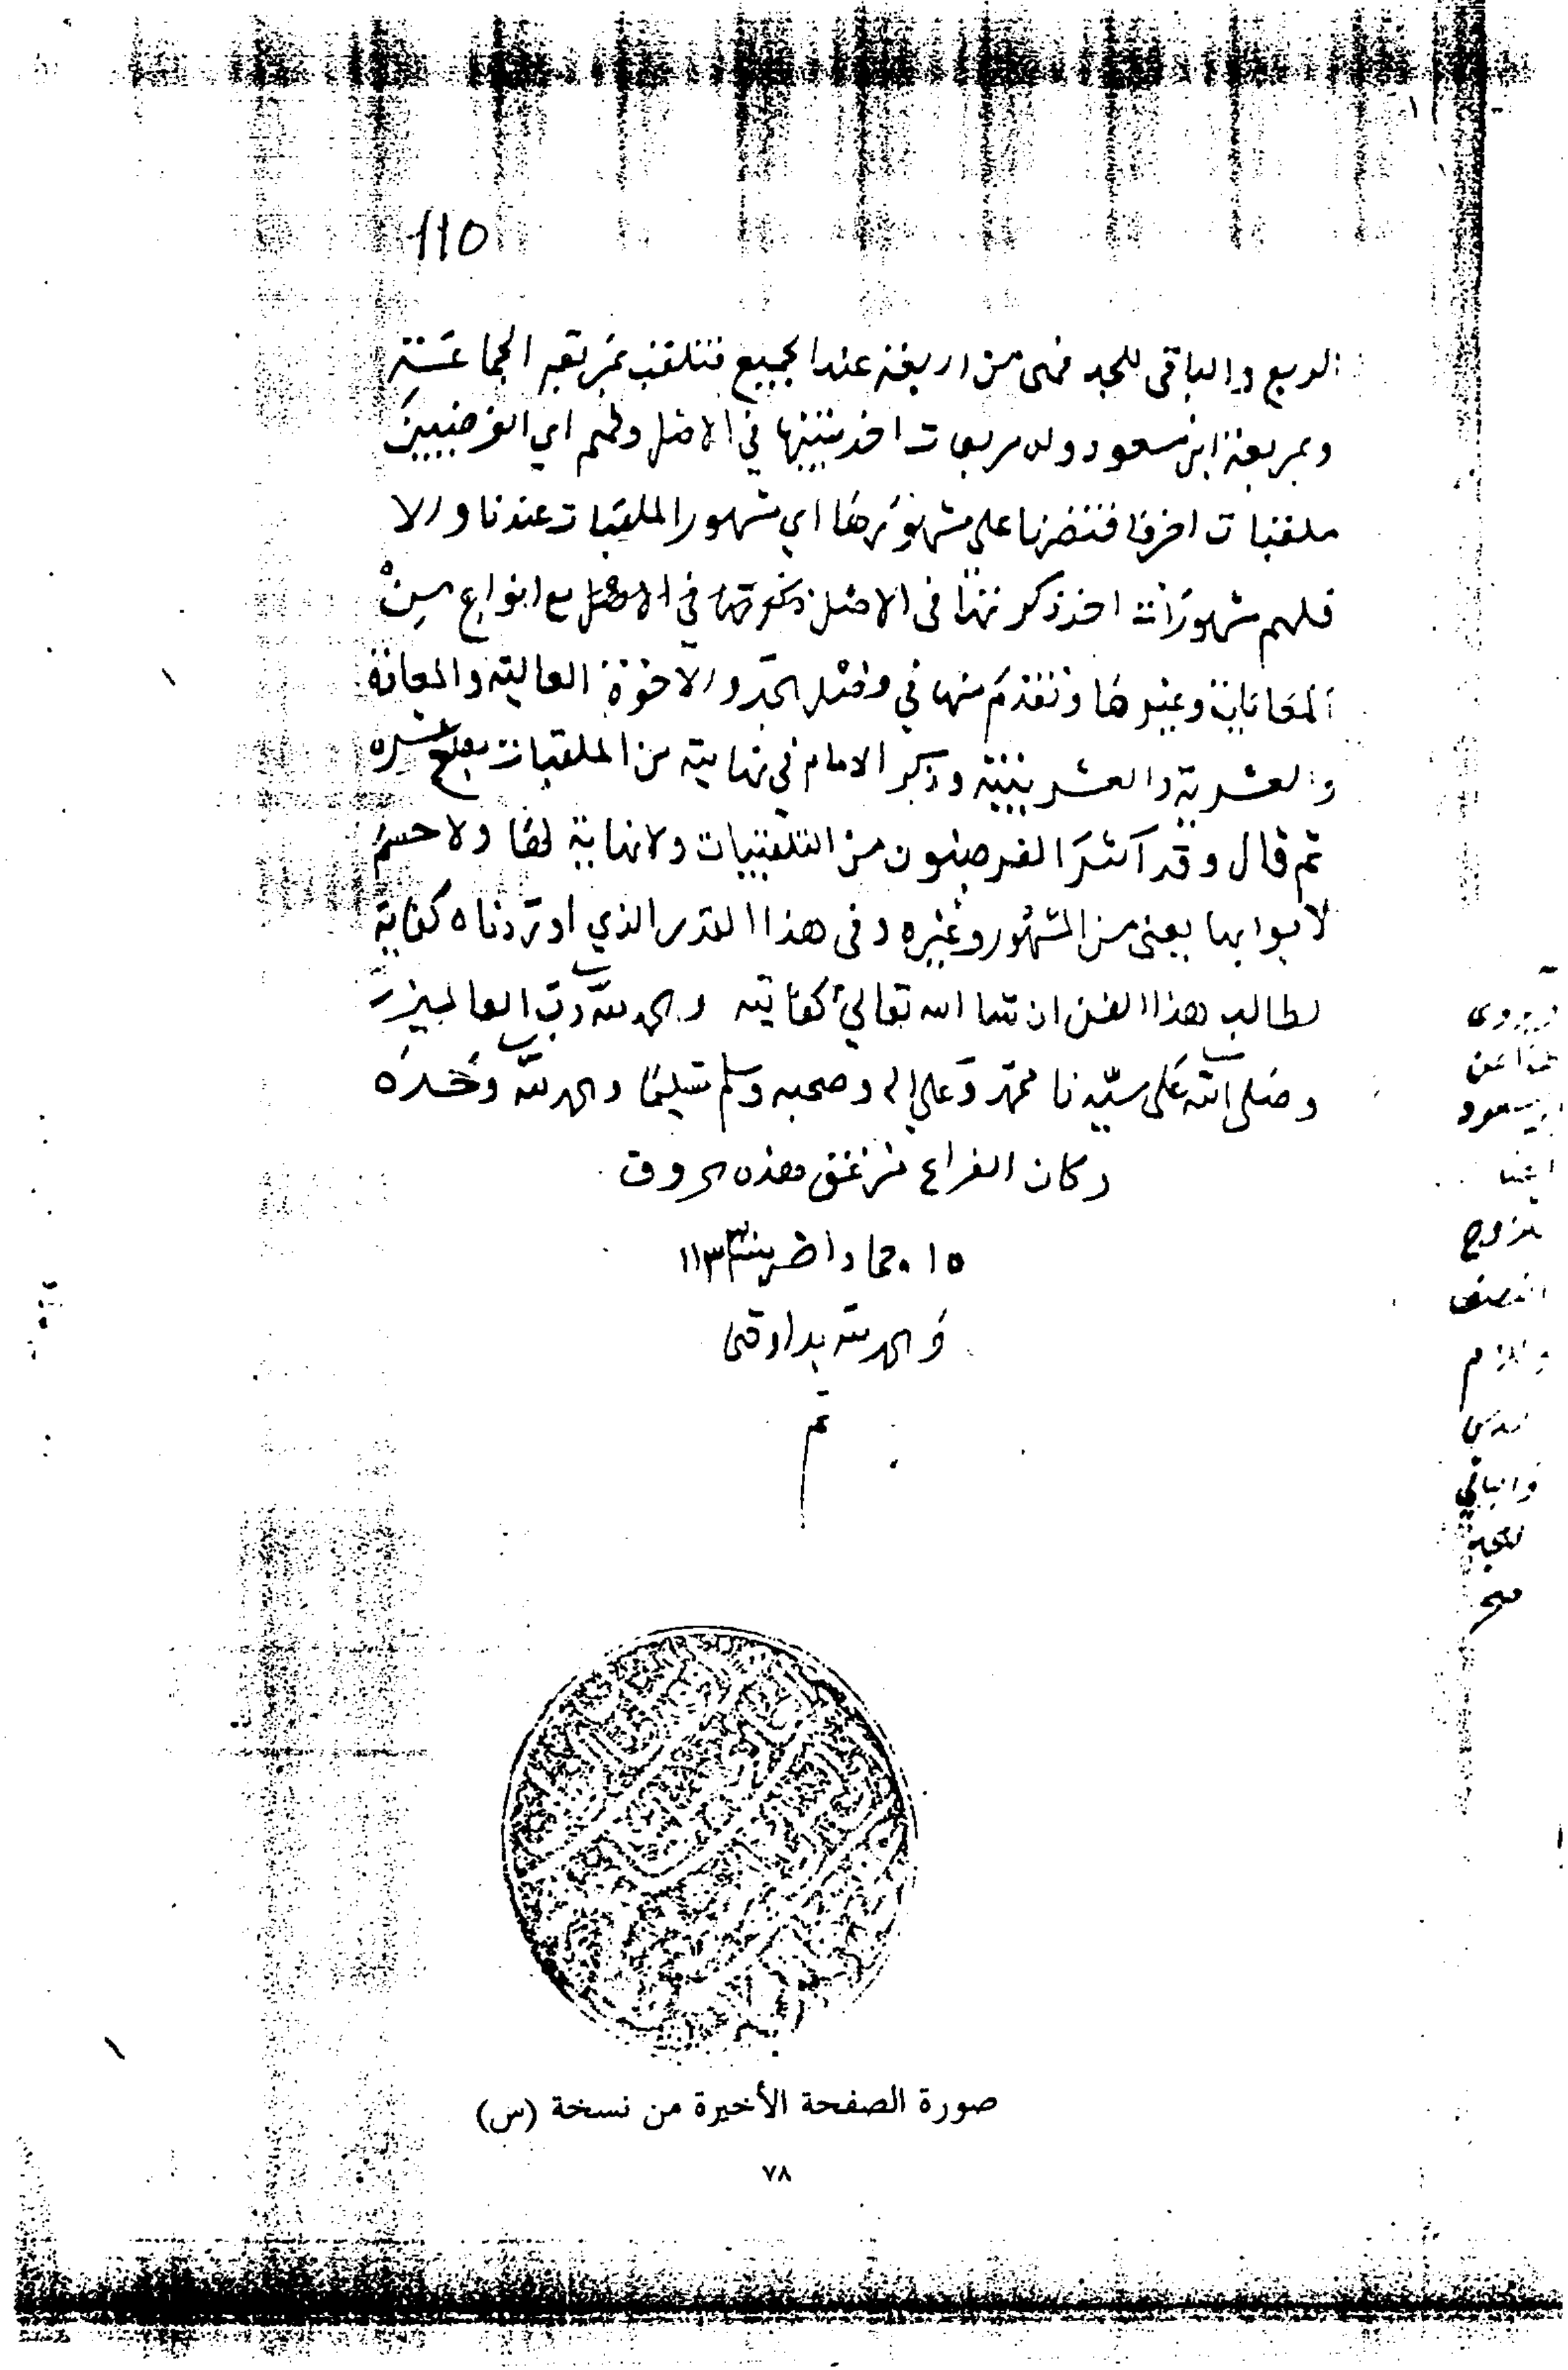 110
الربع والباقى للجد فهى من اربعة عند الجميع فتلقب بمربعة الجماعة
وبمربعة ابن مسعود وله مربعات اخر بينتها في الاصل ولهم اي الفرضيين
ملقبات اخر فاقتصرنا على مشهورها اي مشهور الملقبات عندنا والا
فلهم مشهورات اخر ذكرتها فى الاصل في الاصل مع انواع من
المعاياة وغيرها وتقدم منها في فصل الجد والاخوة العالية والمعادة
والعشرية والعشرينية وذكر الامام في نهايته من الملقبات عشره
ثم قال وقد اكثر الفرضيون من التلقيبات ولانهاية لها ولا حسم
لابوابها يعنى من المشهور وغيره وفى هذا القدر الذي اوردناه كفاية
لطالب هذا الفن ان شا الله تعالى كفاية والحمد لله رب العالمين
وصلى الله على سيدنا محمد وعلى اله وصحبه وسلم تسليما والحمد لله وحده
وكان الفراغ من هذه الحروف
١٥ جماد اخر سنة ١١٣٣
والحمد لله
تم
ويروى
هذا عن
ابن مسعود
ايضا
للزوج
النصف
وللام
والباقي
للجد
صح
صورة الصفحة الأخيرة من نسخة (س)
٧٨